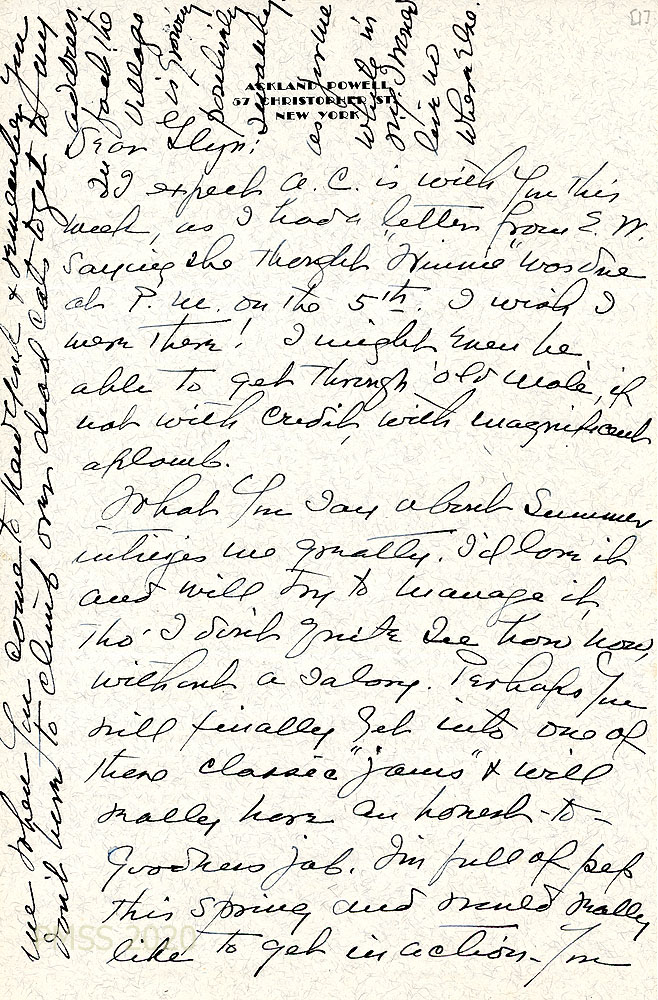 [17]
ACKLAND POWELL
57 CHRISTOPHER ST.
NEW YORK
Dear Glyn:
I expect A. C. is with you this
week, as I had a letter from E. W.
saying she thought "Winnie" was due
at P. M. on the 5th. I wish I
were there! I might even be
able to get through 'old mole', if
not with credit, with magnificent
aplomb.
What you say about Summer
intrigues me greatly. I'd love it
and will try to manage it,
tho' I don't quite see how now,
without a salary. Perhaps you
will finally get into one of
these classic "jams" & will
really have an honest-to-
goodness job. I'm full of pep
this Spring and would really
like to get in action. You
me when you come to New York & remember you
don't have to climb over dead cats to get to my
address.
In fact the
Village
is growing
positively
swanky
as for me
while in
N.Y. I would
live no
where else.
PMSS 2020